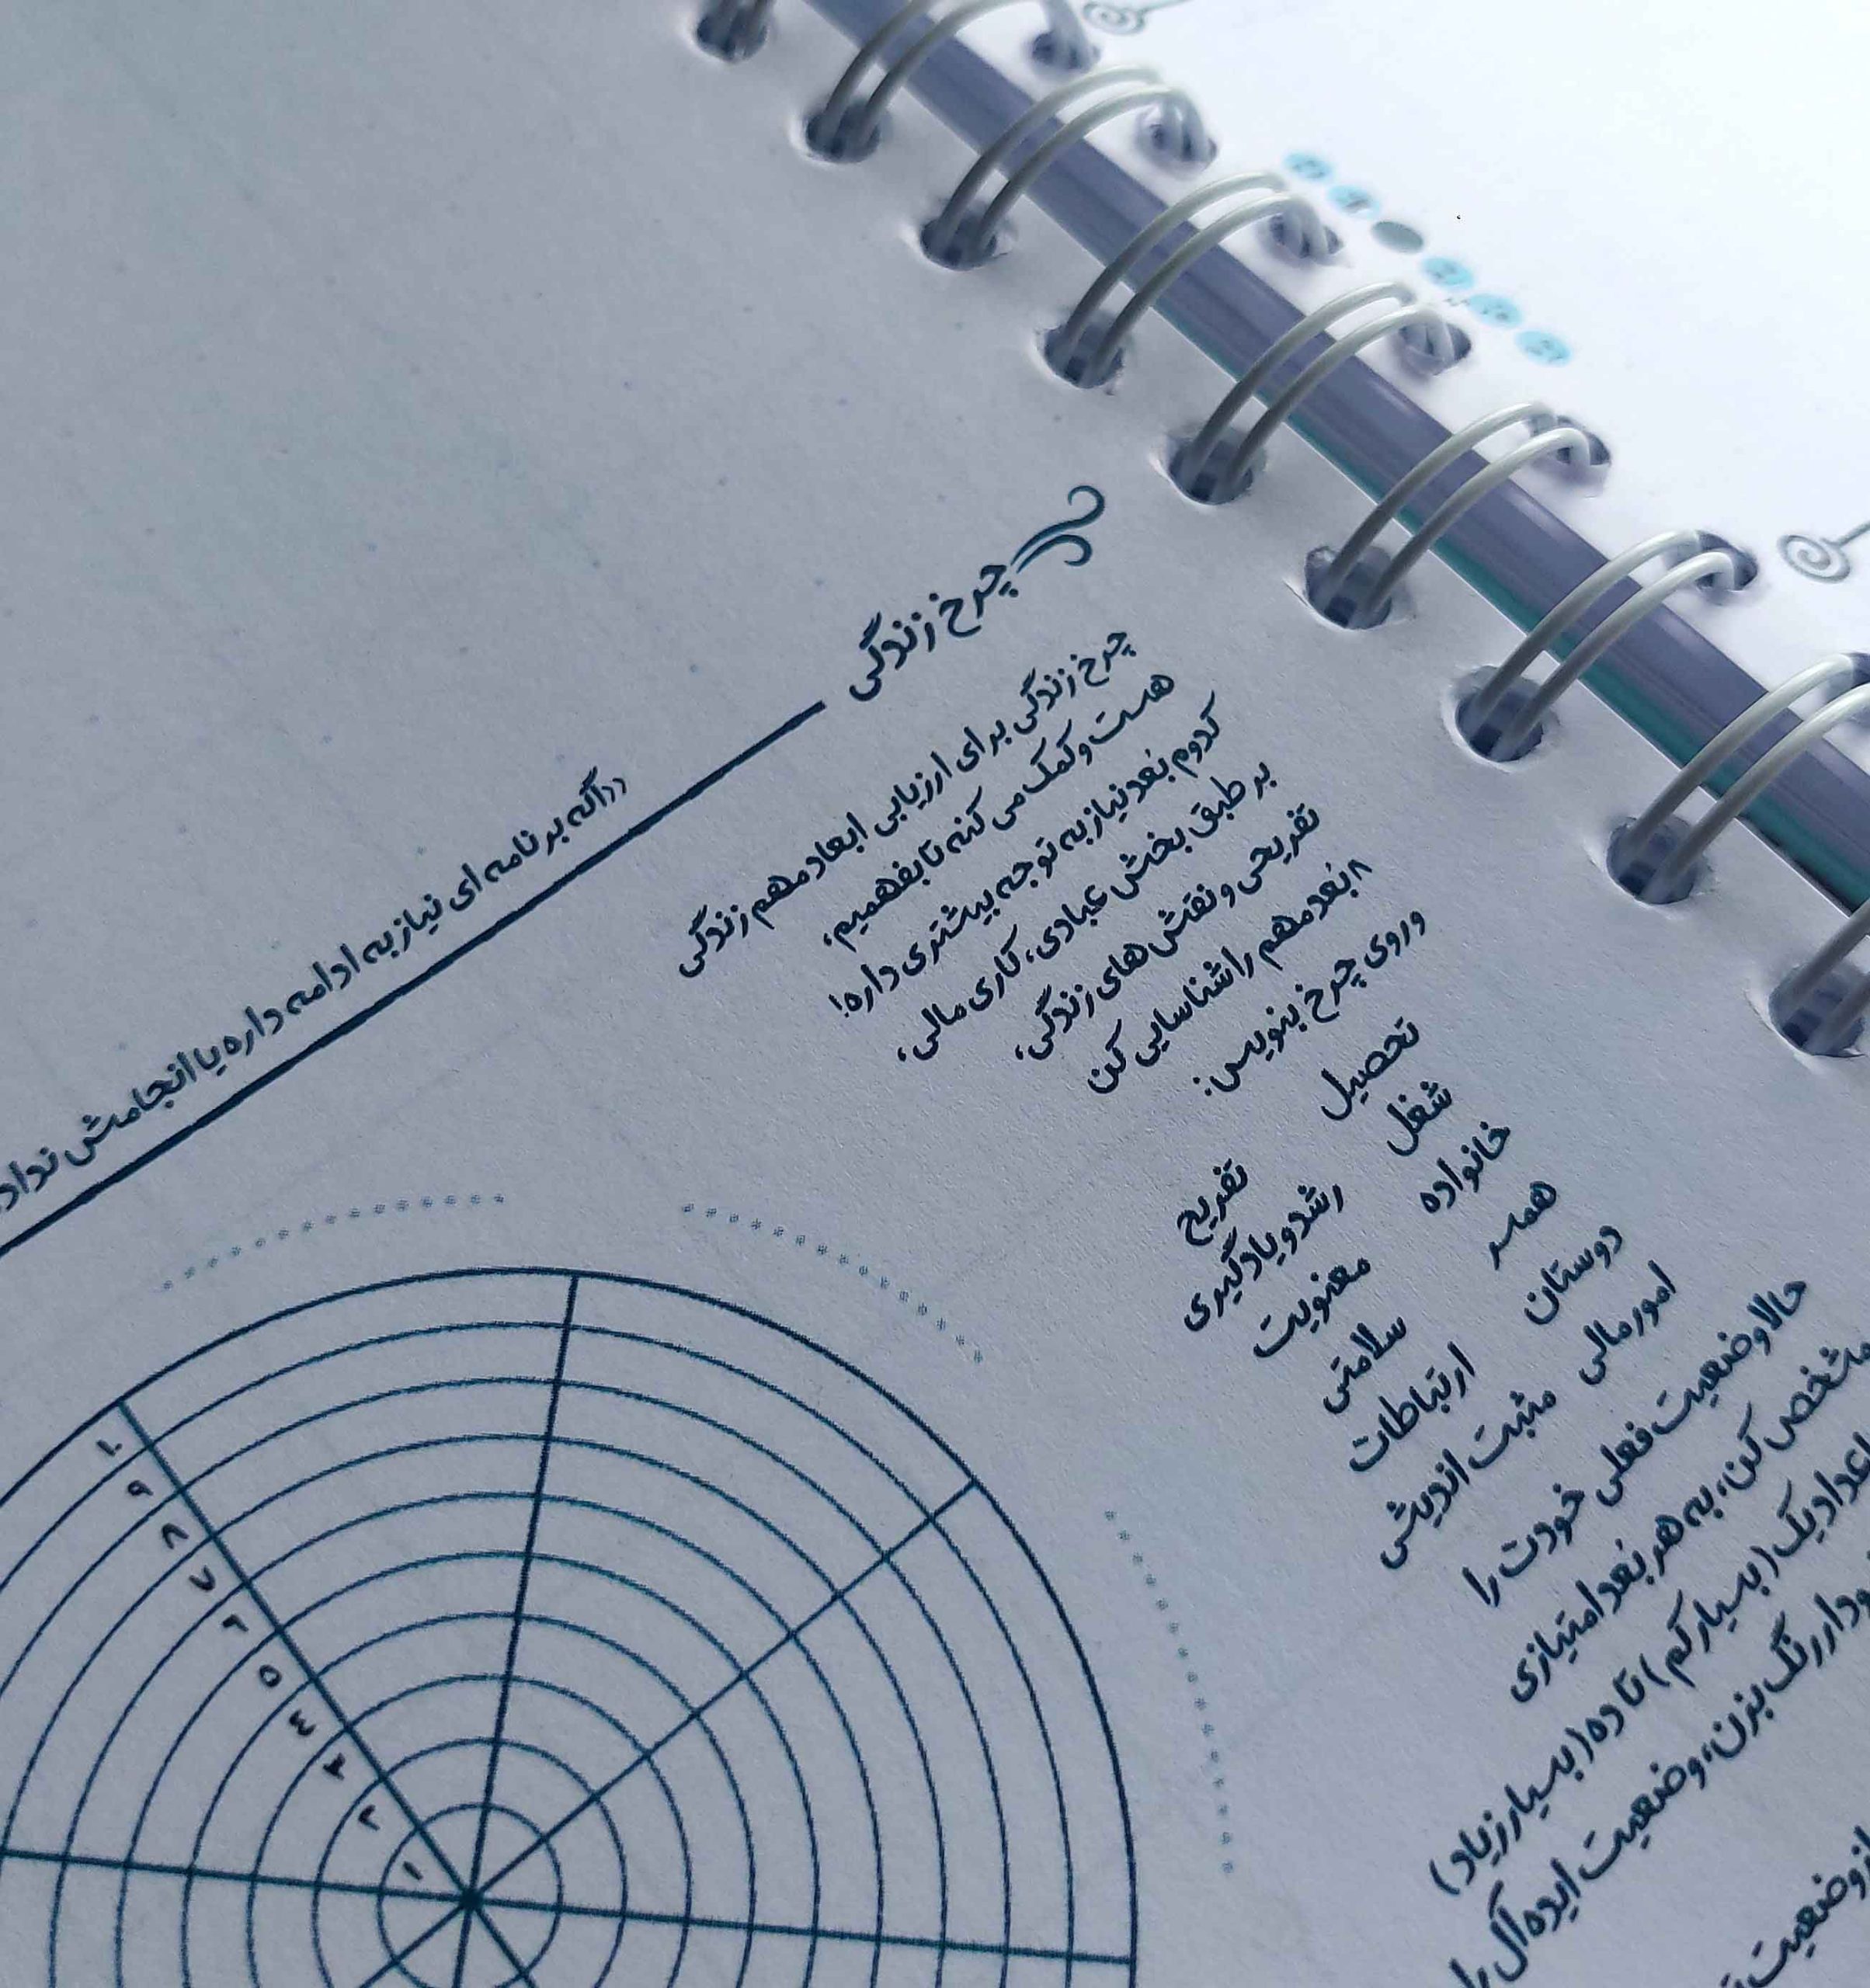 چرخ زندگی
«اگه برنامه ای نیاز به ادامه داره یا انجامش
چرخ زندگی برای ارزیابی ابعاد مهم زندگی
هست و کمک می کنه تا بفهمیم،
کدوم بُعد نیاز به توجه بیشتری داره!
بر طبق بخش عبادی، کاری مالی،
تفریحی و نقش های زندگی،
۸ بُعد مهم را شناسایی کن
و روی چرخ بنویس:
تحصیل تفریح
شغل رشد و یادگیری
خانواده معنویت
همسر سلامتی
دوستان ارتباطات
امور مالی مثبت اندیشی
حالا وضعیت فعلی خودت را
مشخص کن، به هر بُعد امتیازی
اعداد یک (بسیار کم) تا ده (بسیار زیاد)
رنگ بزن، وضعیت ایده آل
وضعیت
۱۰
۹
۸
۷
۶
۵
۴
۳
۲
۱